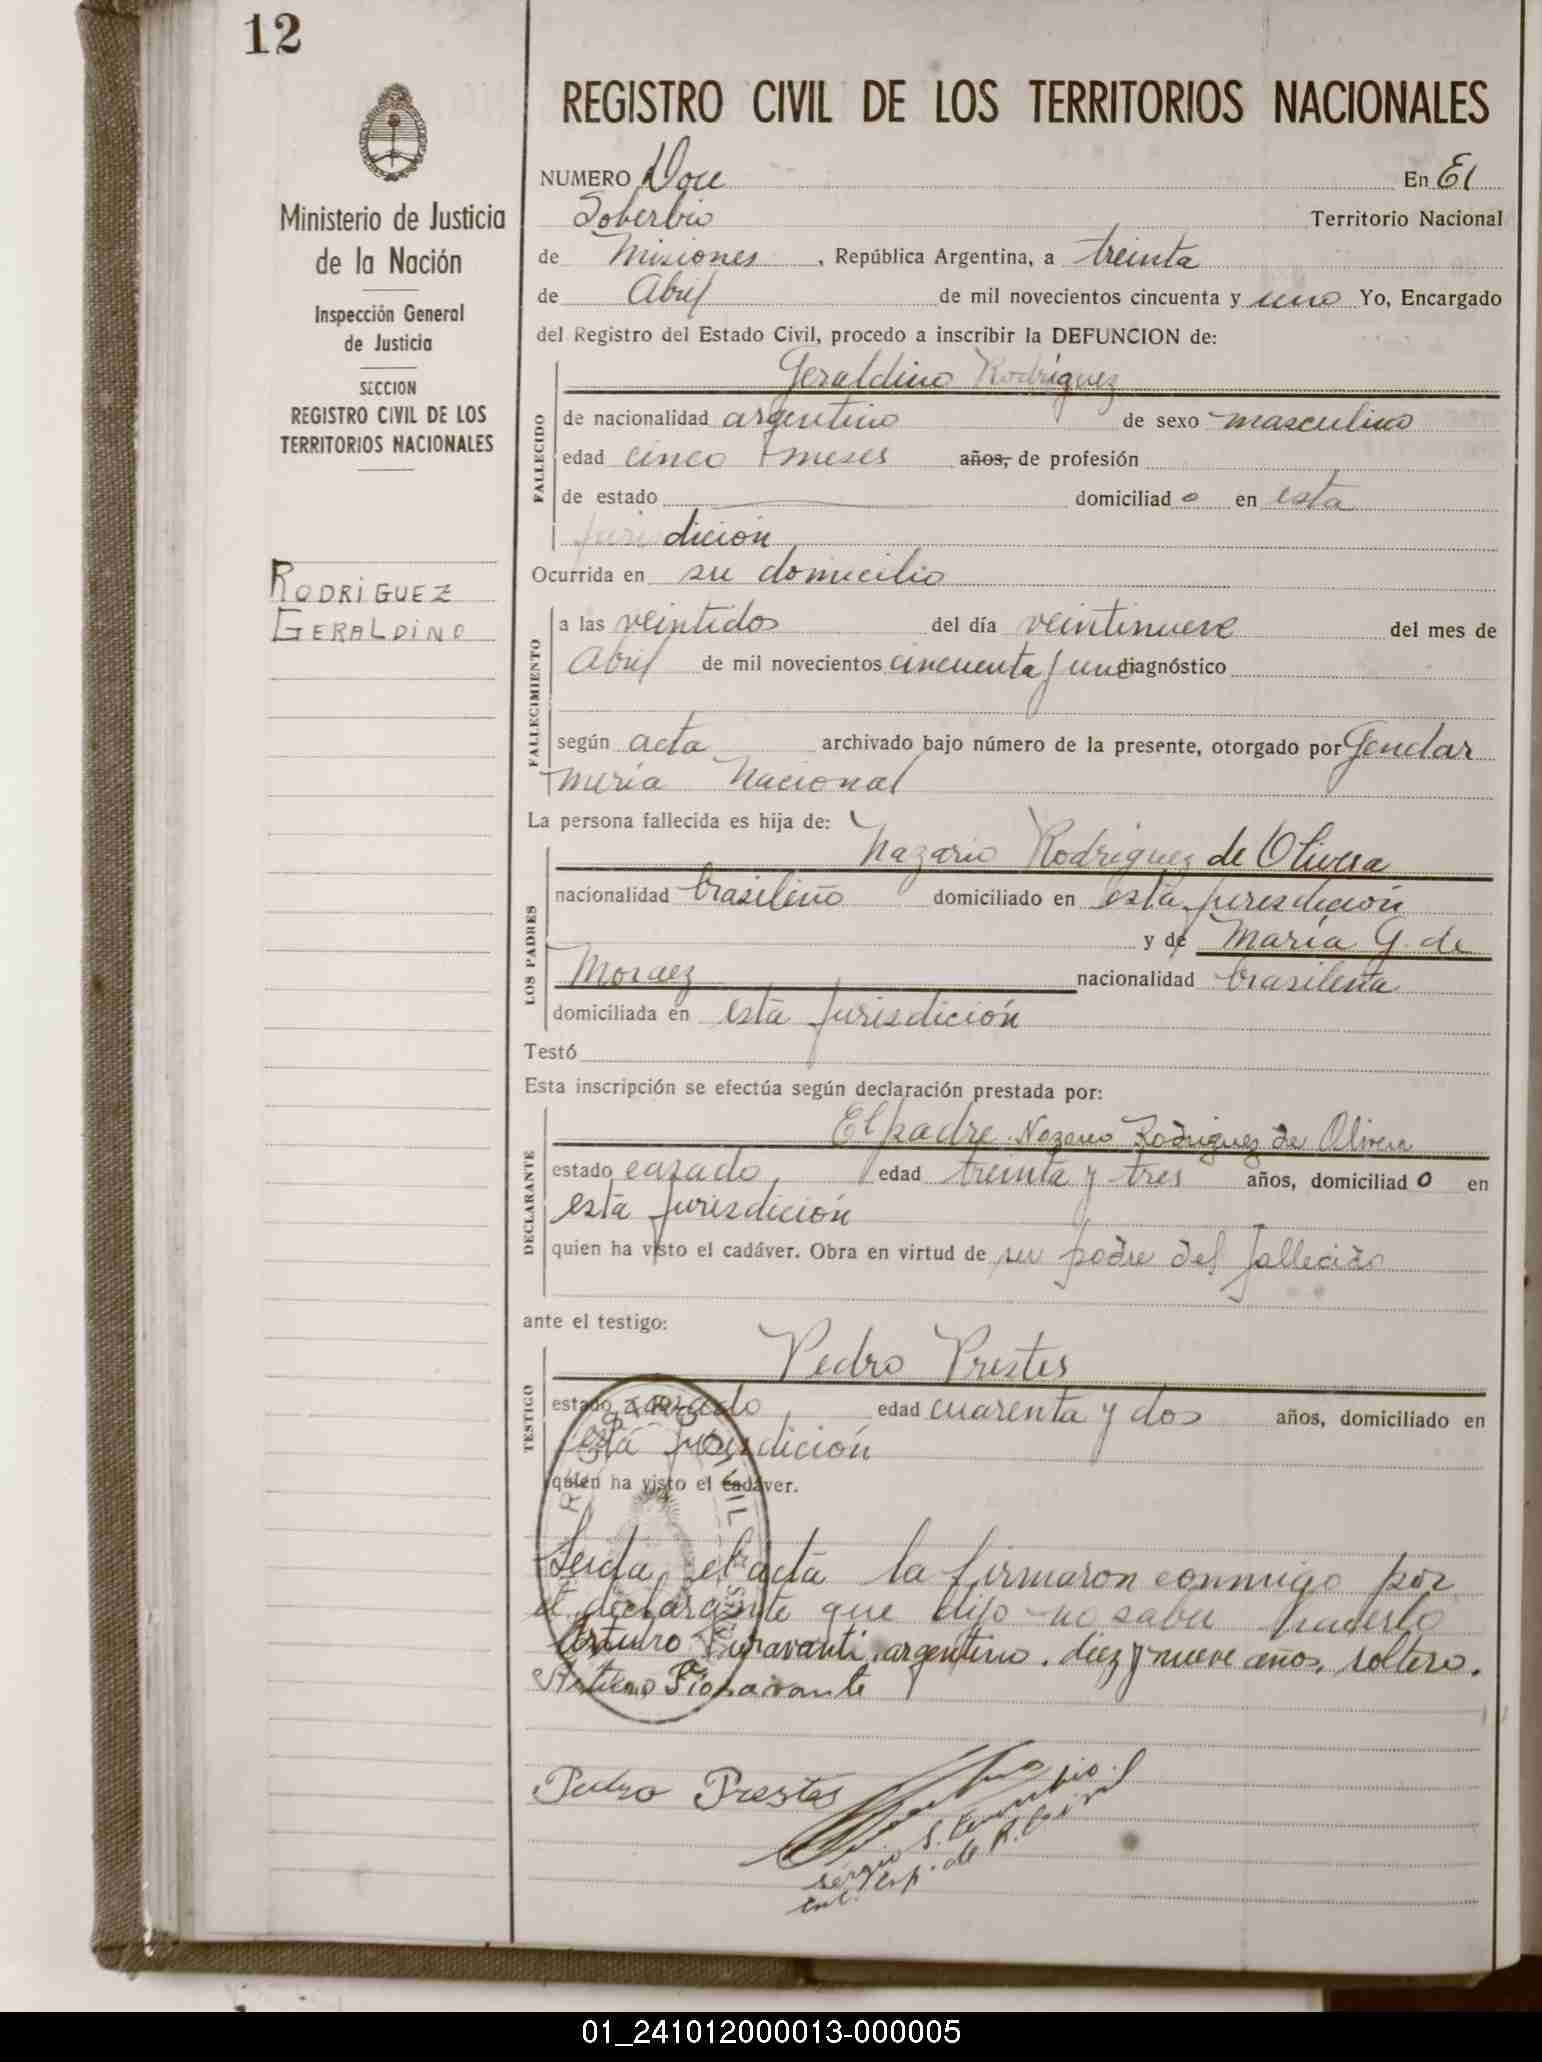 12
REGISTRO CIVIL DE LOS TERRITORIOS NACIONALES
Ministerio de Justicia
de la Nación
Inspección General
de Justicia
SECCION
REGISTRO CIVIL DE LOS
TERRITORIOS NACIONALES
RODRIGUEZ
GERALDINO
NUMERO Doce En El
Soberbio Territorio Nacional
de Misiones, República Argentina, a treinta
de Abril de mil novecientos cincuenta y uno Yo, Encargado
del Registro del Estado Civil, procedo a inscribir la DEFUNCION de:
Geraldino Rodriguez
FALLECIDO
de nacionalidad argentino de sexo masculino
edad cinco meses años, de profesión
de estado domiciliado en esta
jurisdición
Ocurrida en su domicilio
FALLECIMIENTO
a las veintidos del día veintinueve del mes de
Abril de mil novecientos cincuenta y uno diagnóstico
según acta archivado bajo número de la presente, otorgado por Gendar
meria Nacional
La persona fallecida es hija de:
LOS PADRES
Nazario Rodriguez de Olivera
nacionalidad brasileño domiciliado en esta jurisdición
y de María G. de
Moraez nacionalidad brasileña
domiciliada en esta jurisdición
Testó
Esta inscripción se efectúa según declaración prestada por:
DECLARANTE
El padre Nazario Rodriguez de Olivera
estado casado, edad treinta y tres años, domiciliado en
esta jurisdición
quien ha visto el cadáver. Obra en virtud de ser padre del fallecido
ante el testigo:
TESTIGO
Pedro Prestes
estado casado edad cuarenta y dos años, domiciliado en
esta jurisdición
quien ha visto el cadáver.
REGISTRO CIVIL
Leida el acta la firmaron conmigo por
el declarante que dijo no saber hacerlo
Arturo Fioravanti, argentino, diez y nueve años, soltero.
Arturo Fioravante
Pedro Prestes
Sergio S.
enc. de R. Civil
01_241012000013-000005